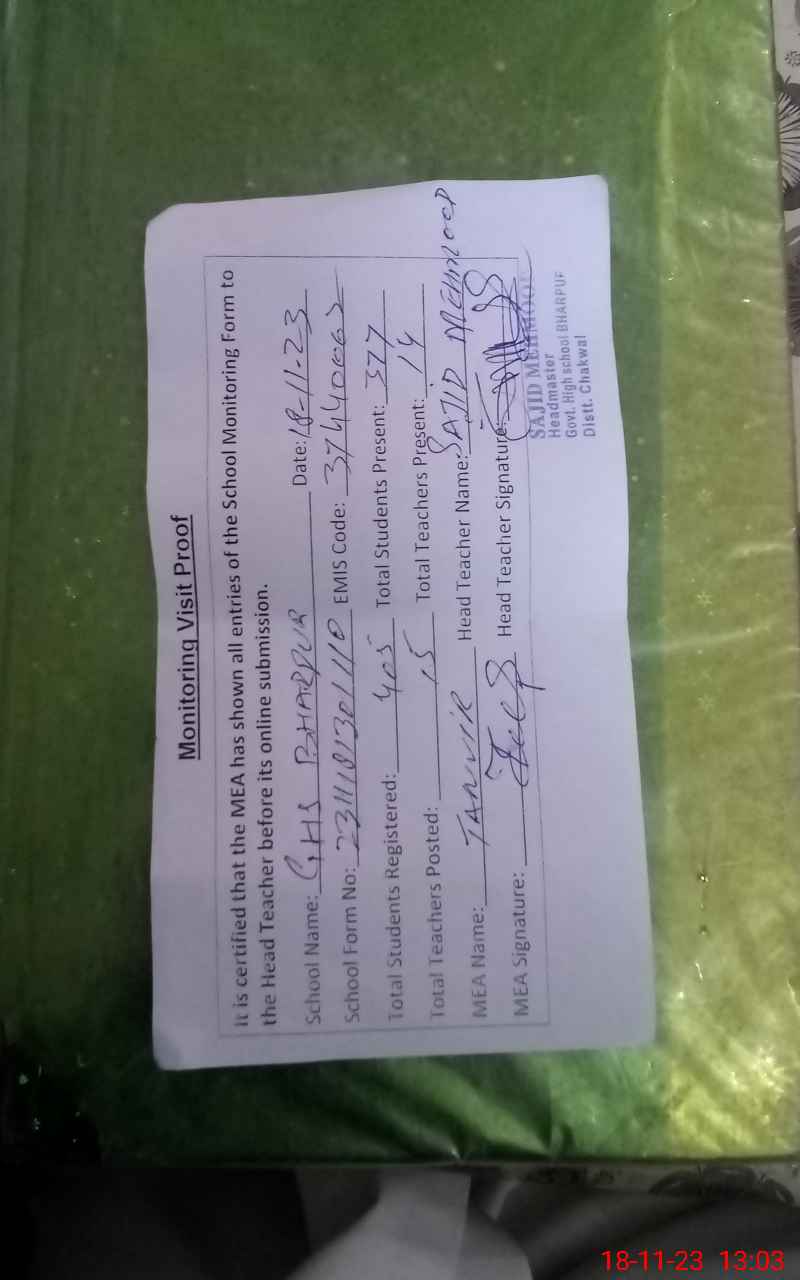 Monitoring Visit Proof
It is certified that the MEA has shown all entries of the School Monitoring Form to
the Head Teacher before its online submission.
School Name: GHS BHARPUR Date: 18-11-23
School Form No: 2311181301110 EMIS Code: 37440062
Total Students Registered: 405 Total Students Present: 377
Total Teachers Posted: 15 Total Teachers Present: 14
MEA Name: TANVIR Head Teacher Name: SAJID MEHMOOD
MEA Signature: Head Teacher Signature:
SAJID MEHMOOD
Headmaster
Govt. High school BHARPUR
Distt. Chakwal
18-11-23 13:03